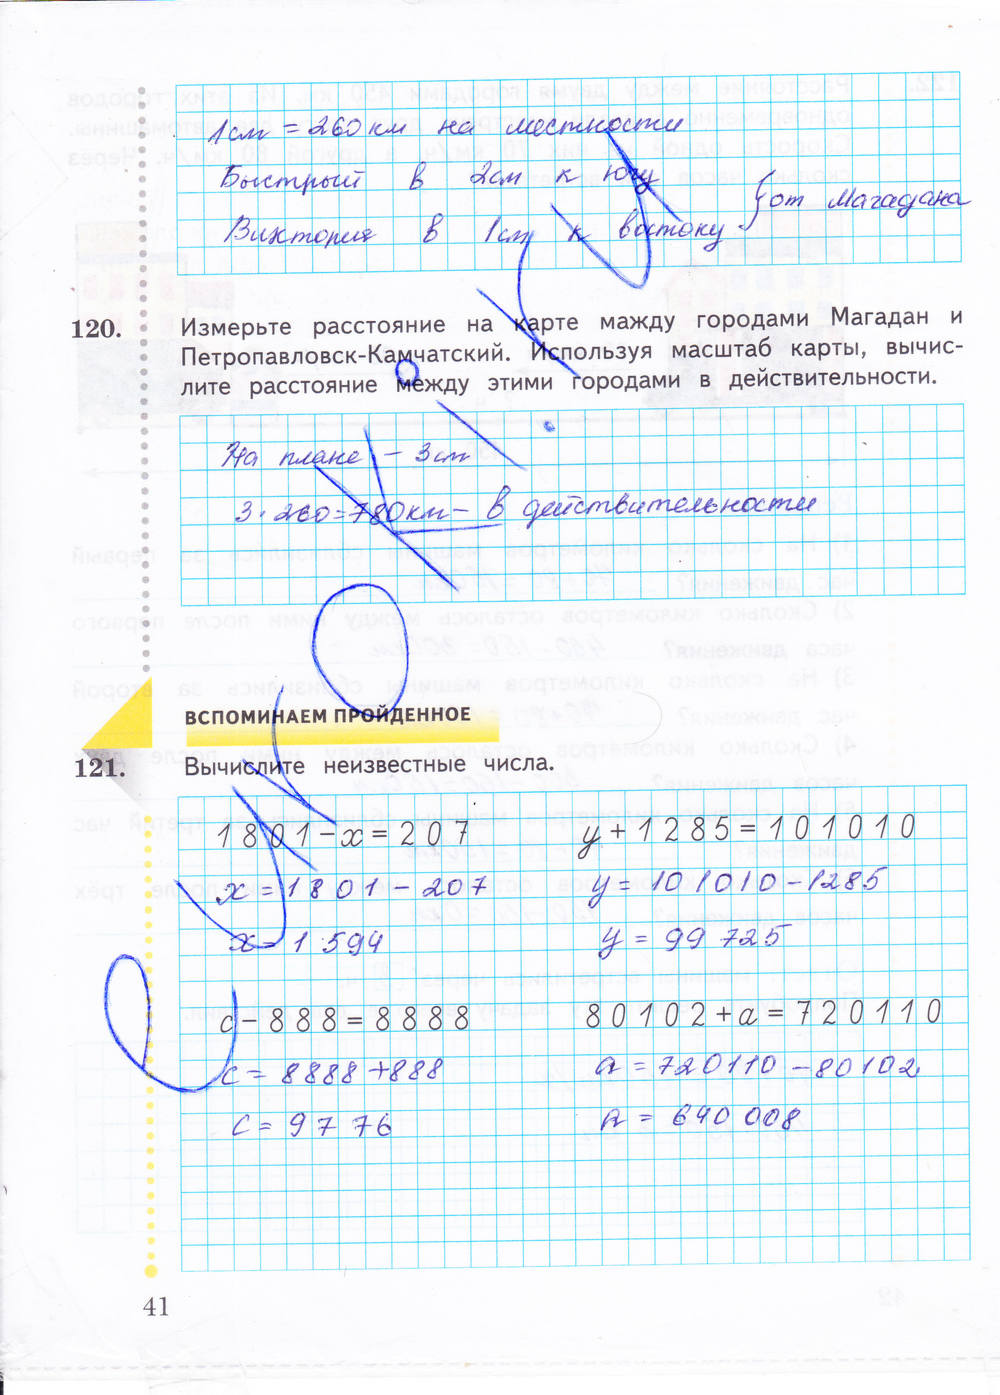 1 см = 260 км на местности
Быстрый в 2 см к югу
Виктория в 1 см к востоку } от Магадана
120.
Измерьте расстояние на карте мажду городами Магадан и
Петропавловск-Камчатский. Используя масштаб карты, вычис-
лите расстояние между этими городами в действительности.
На плане – 3 см
3 · 260 = 780 км – в действительности
ВСПОМИНАЕМ ПРОЙДЕННОЕ
121.
Вычислите неизвестные числа.
1801 – x = 207 y + 1285 = 101010
x = 1801 – 207 y = 101010 – 1285
x = 1 594 y = 99 725
c – 888 = 8888 80102 + a = 720110
c = 8888 + 888 a = 720110 – 80102
c = 9776 a = 640 008
41